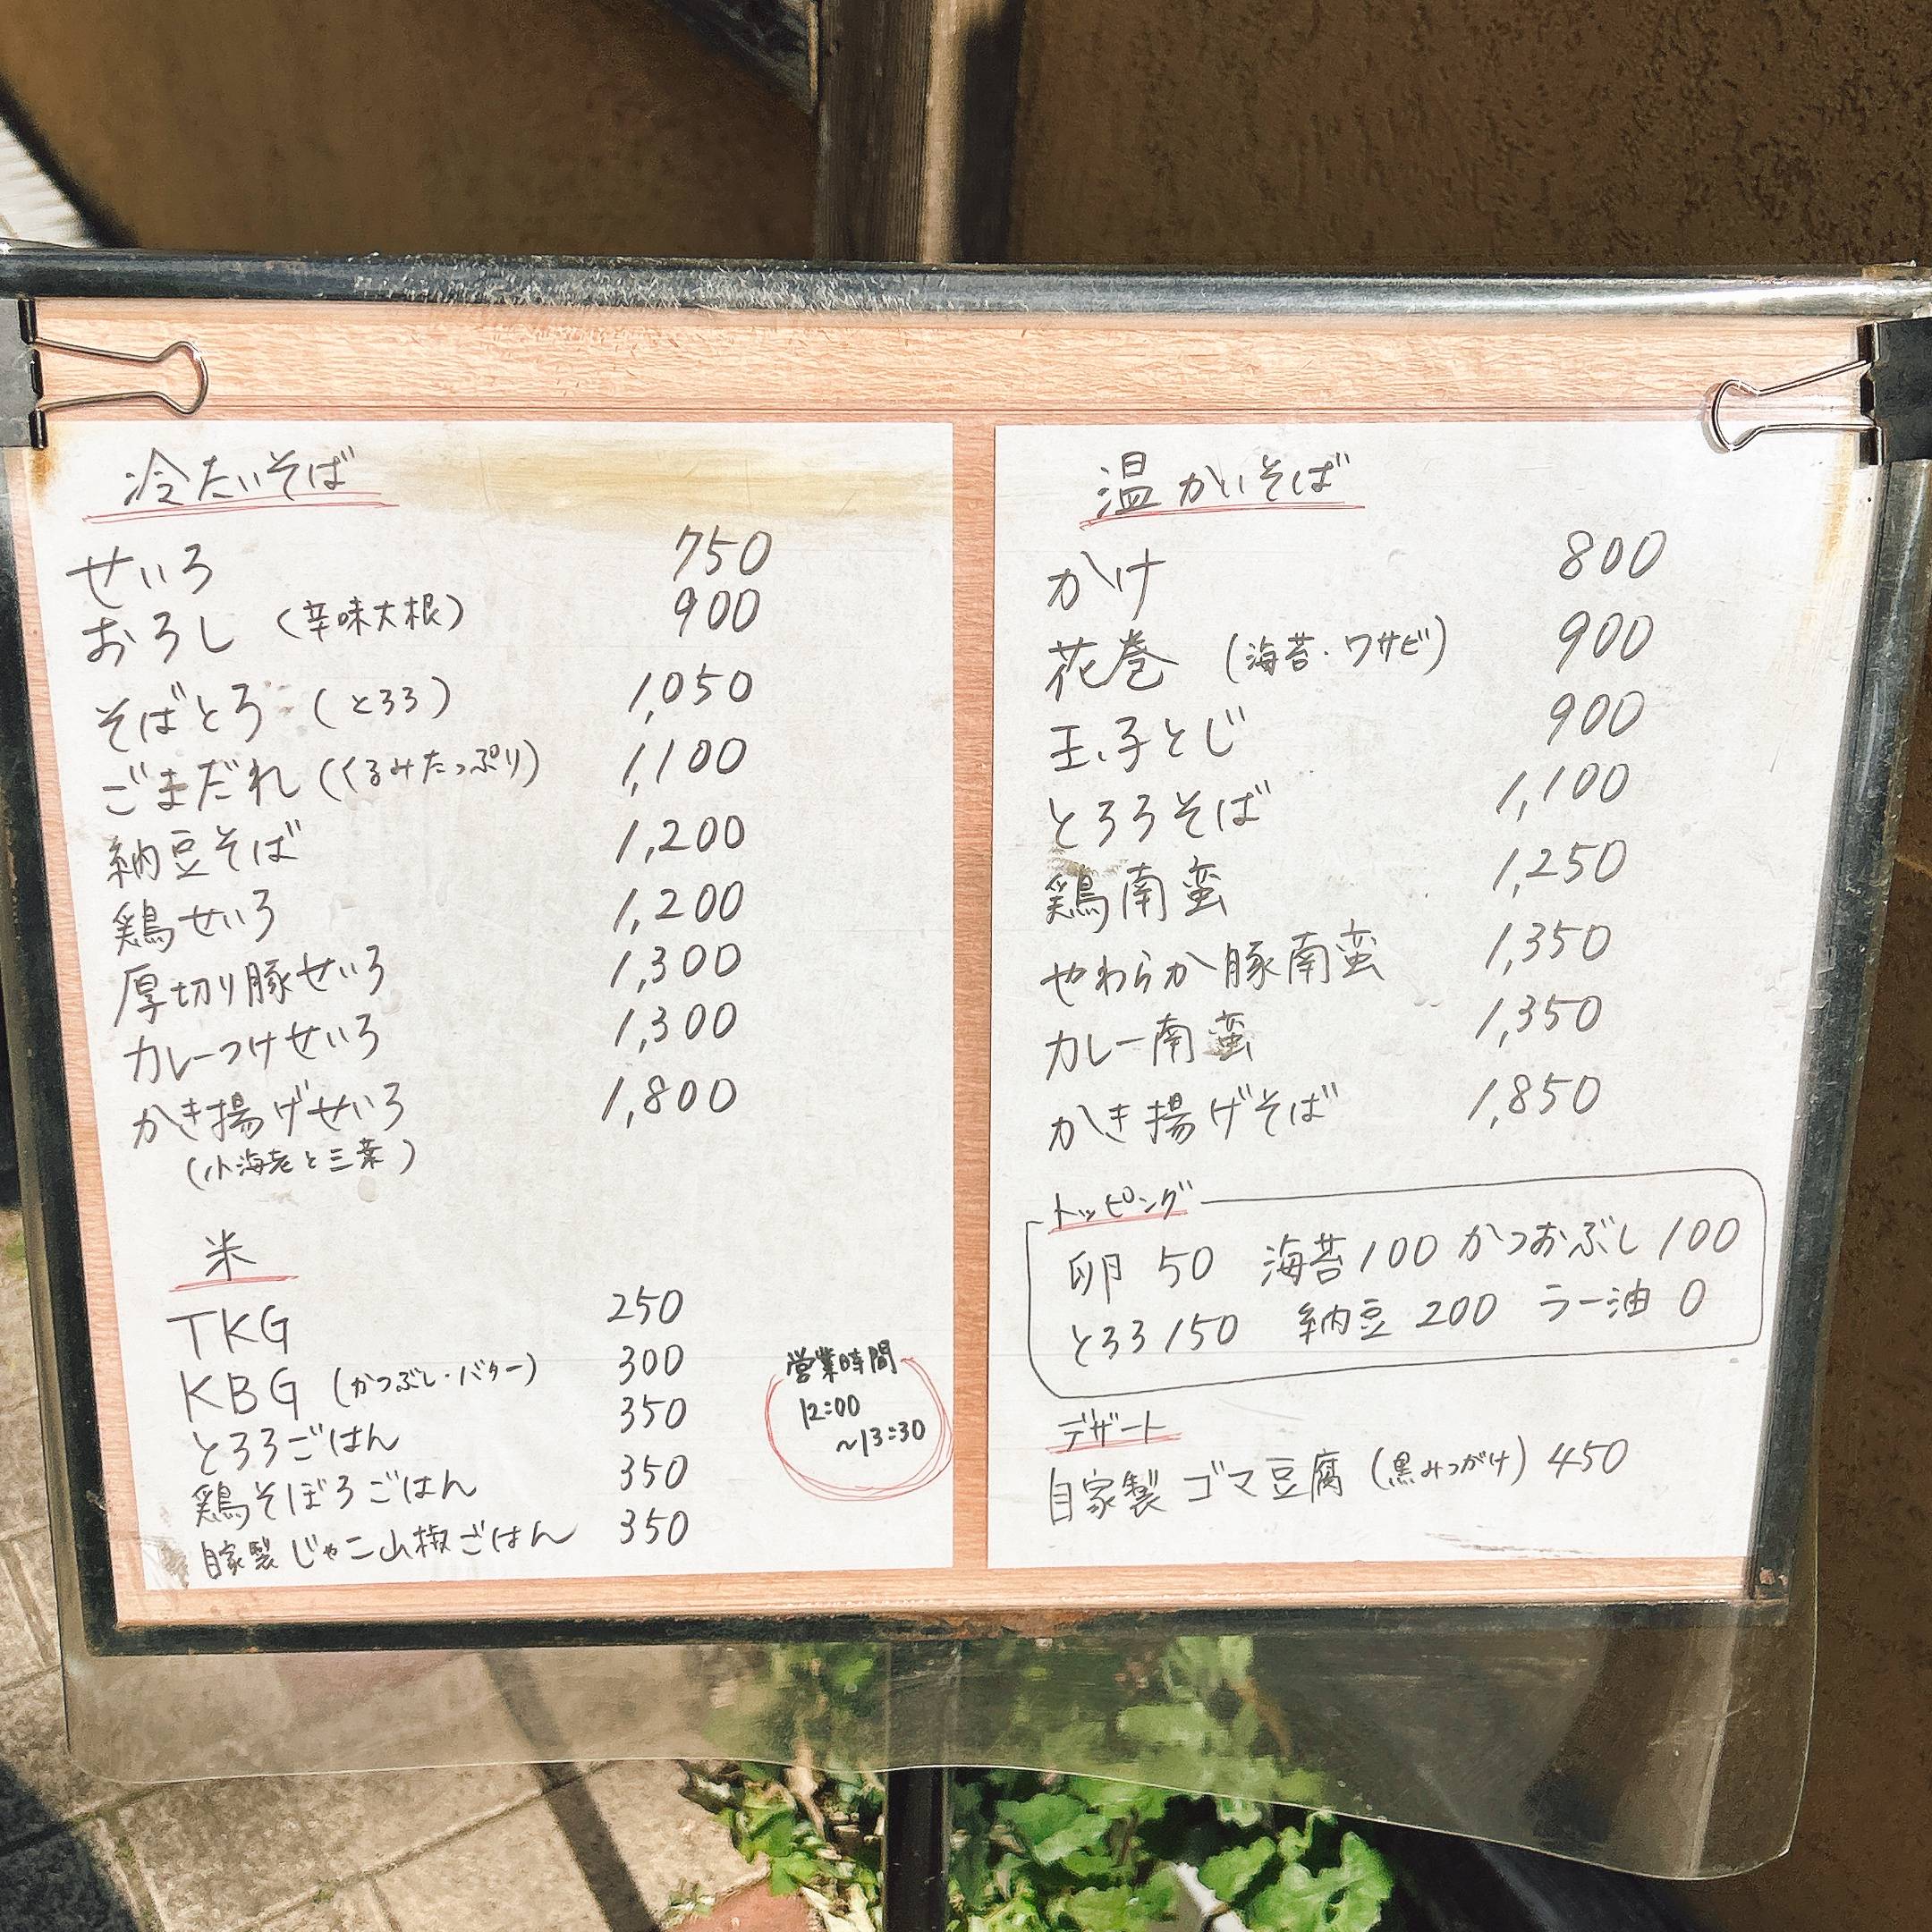 冷たいそば
せいろ 750
おろし (辛味大根) 900
そばとろ (とろろ) 1,050
ごまだれ (くるみたっぷり) 1,100
納豆そば 1,200
鶏せいろ 1,200
厚切り豚せいろ 1,300
カレーつけせいろ 1,300
かき揚げせいろ 1,800
(小海老と三葉)
米
TKG 250
KBG (かつぶし・バター) 300
とろろごはん 350
鶏そぼろごはん 350
自家製じゃこ山椒ごはん 350
営業時間
12:00
~13:30
温かいそば
かけ 800
花巻 (海苔・ワサビ) 900
玉子とじ 900
とろろそば 1,100
鶏南蛮 1,250
やわらか豚南蛮 1,350
カレー南蛮 1,350
かき揚げそば 1,850
トッピング
卵 50 海苔 100 かつおぶし 100
とろろ 150 納豆 200 ラー油 0
デザート
自家製 ゴマ豆腐 (黒みつがけ) 450